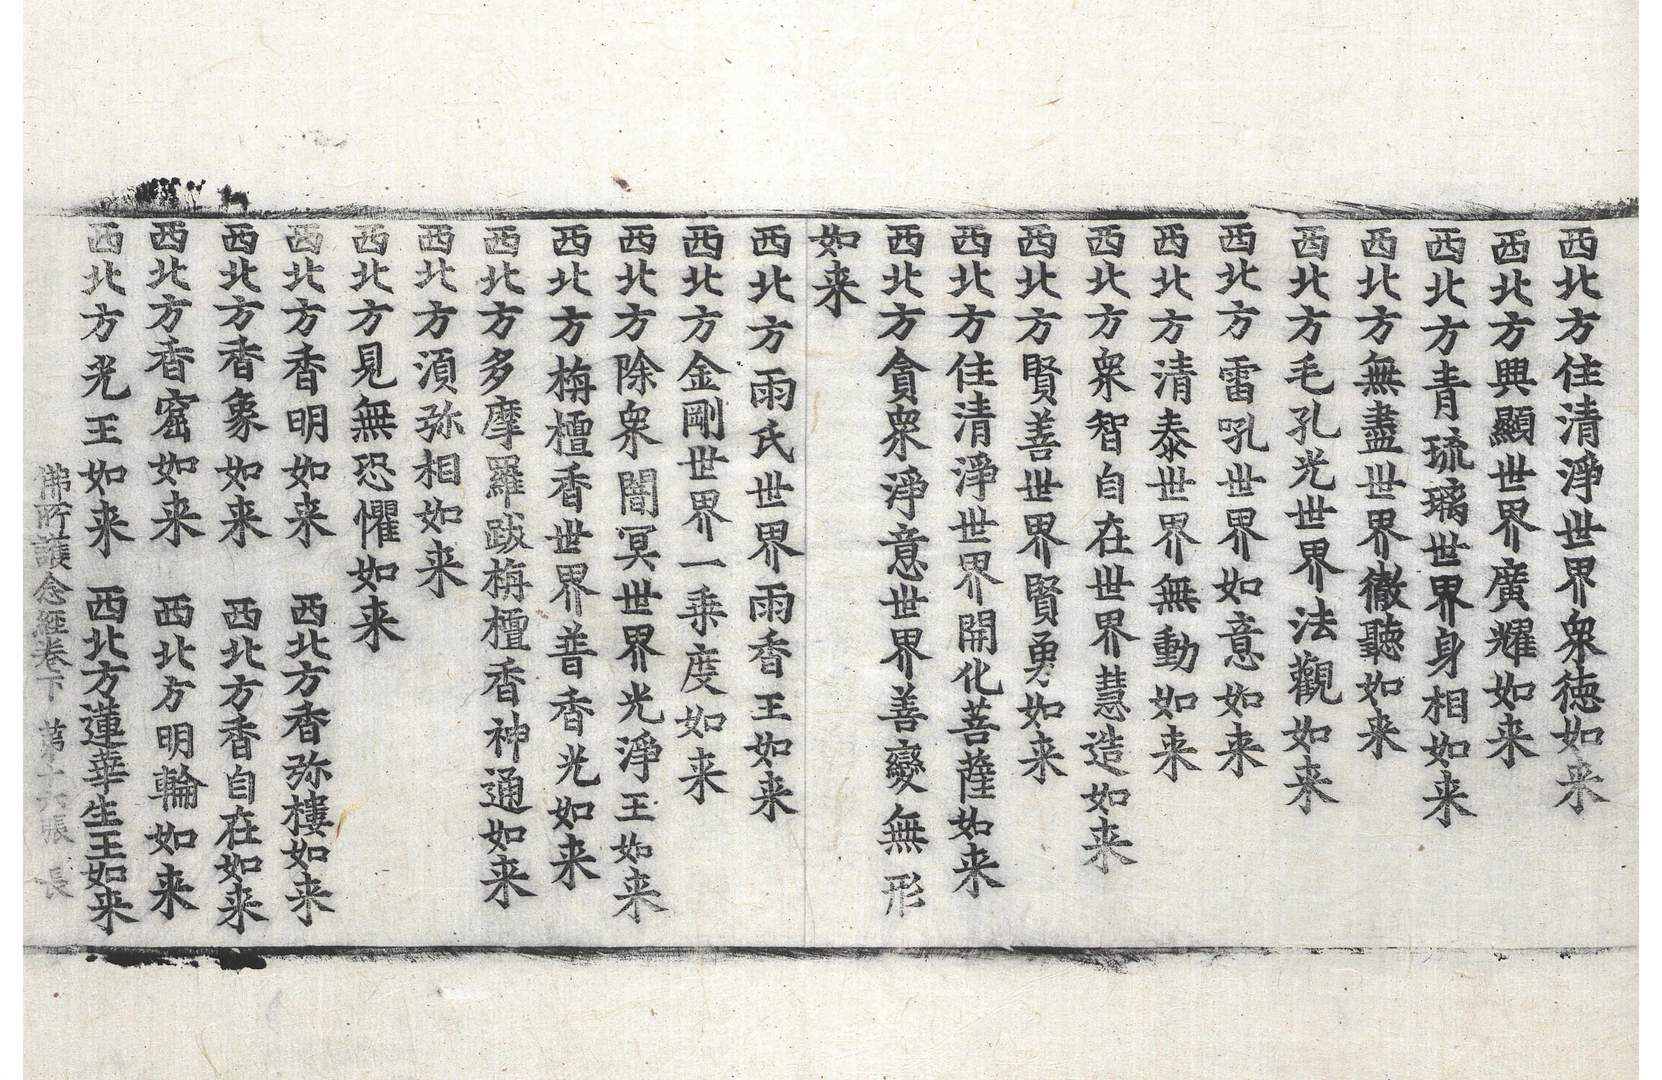 西北方住清淨世界衆徳如来
西北方興顯世界廣耀如来
西北方青琉璃世界身相如来
西北方無盡世界徹聽如来
西北方毛孔光世界法觀如来
西北方雷吼世界如意如来
西北方清泰世界無動如来
西北方衆智自在世界慧造如来
西北方賢善世界賢勇如来
西北方住清淨世界開化菩薩如来
西北方貪衆淨意世界善變無形
如来
西北方雨氏世界雨香王如来
西北方金剛世界一乘度如来
西北方除衆闇冥世界光淨王如来
西北方栴檀香世界普香光如来
西北方多摩羅跋栴檀香神通如来
西北方須弥相如来
西北方見無恐懼如来
西北方香明如来　西北方香弥樓如来
西北方香象如来　西北方香自在如来
西北方香窟如来　西北方明輪如来
西北方光王如来　西北方蓮華生王如来
佛所護念經卷下　第十六張　長